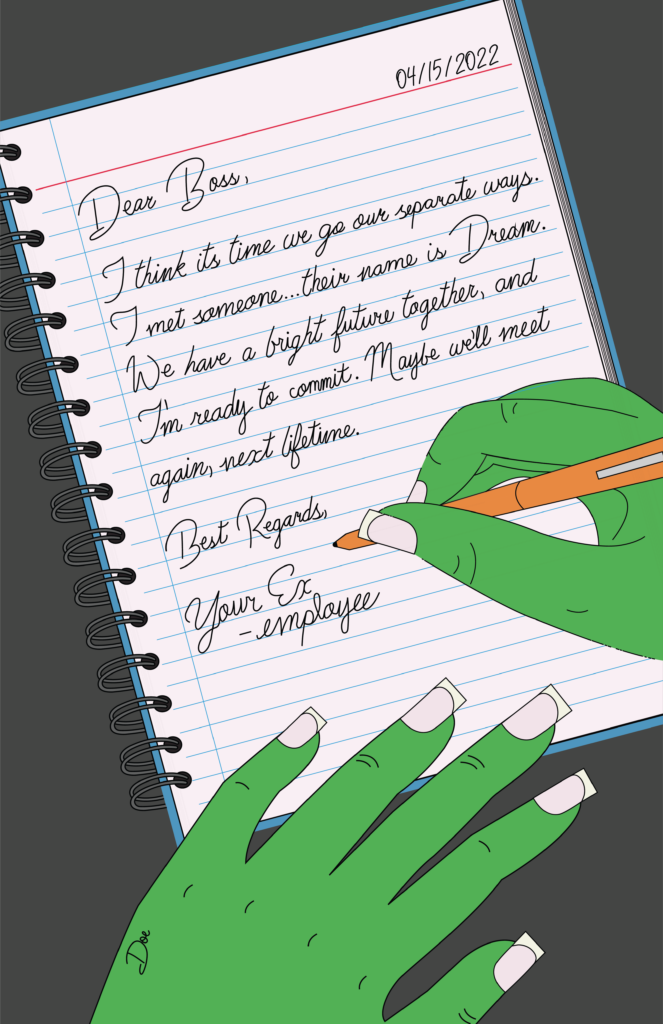 04/15/2022
Dear Boss,
I think its time we go our separate ways.
I met someone...their name is Dream.
We have a bright future together, and
I'm ready to commit. Maybe we'll meet
again, next lifetime.
Best Regards,
Your Ex
-employee
Doe